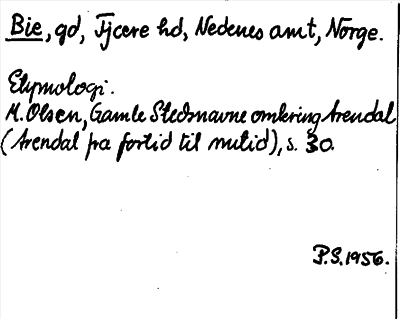 Bie, gd, Tjcere hd, Nedenes amt, Norge.
Etymologi.
M. Olsen, Gamle Stedsnavne omkring Arendal
(Arendal fra fortid til nutid), s. 30.
P.S. 1956.